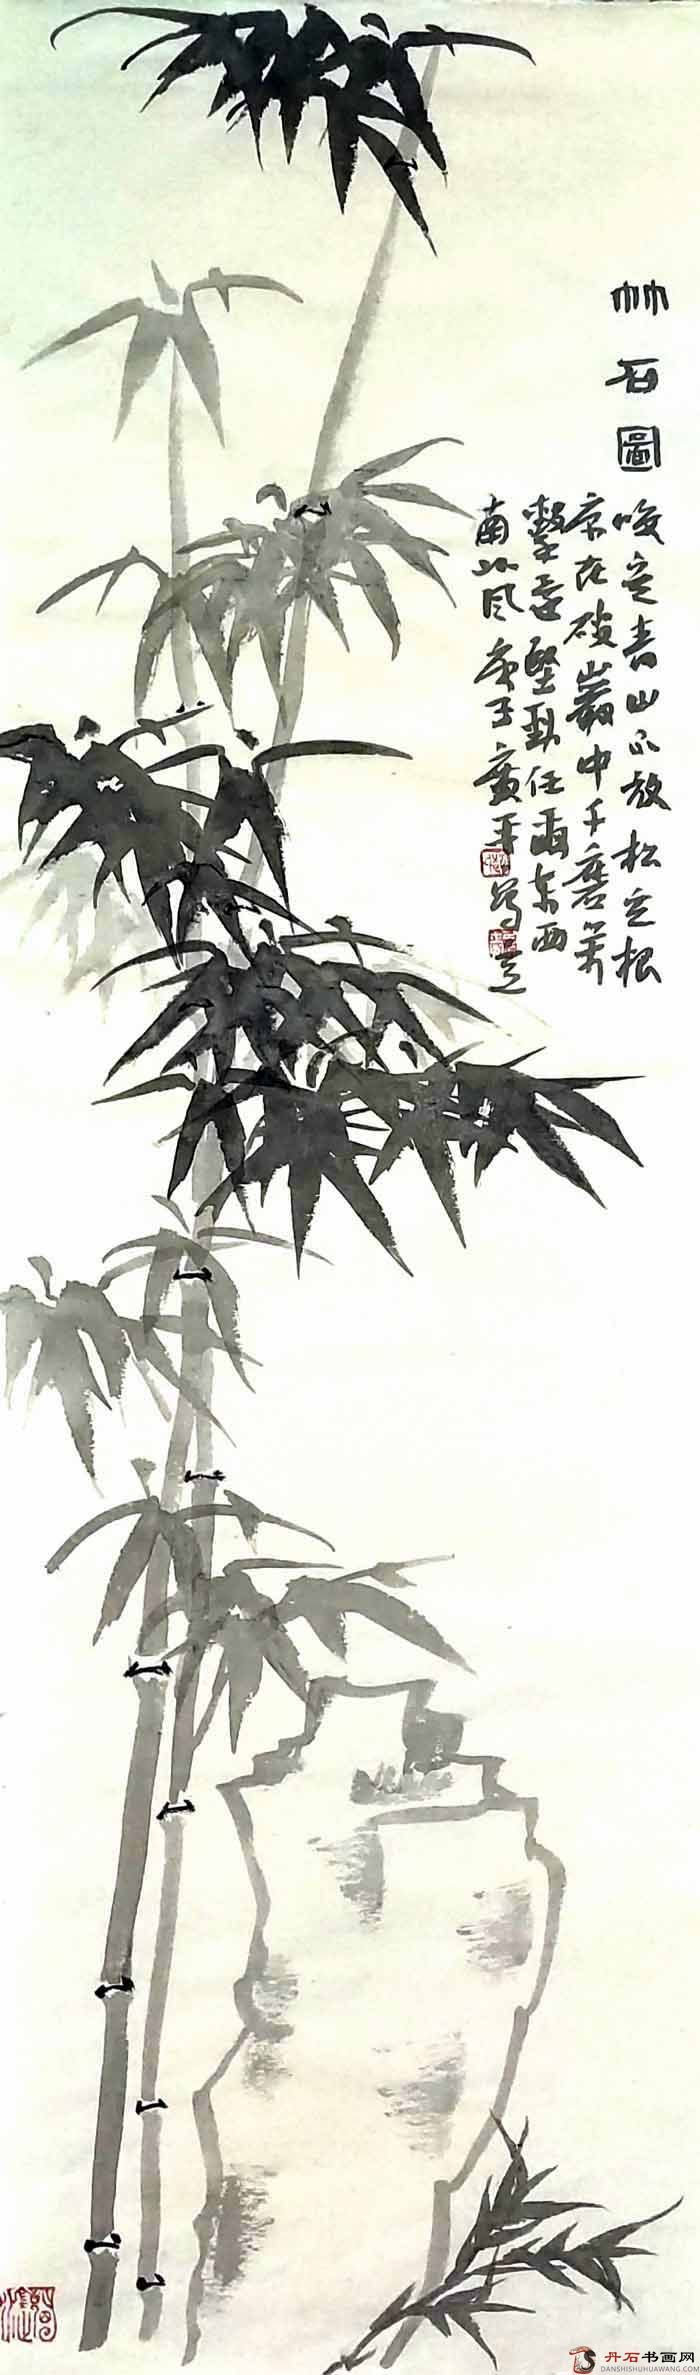 竹石圖
咬定青山不放松立根
原在破巖中千磨萬
擊還堅勁任爾东西
南北风庚子廣平写
丹石书画网
DANSHISHUHUAWANG.COM